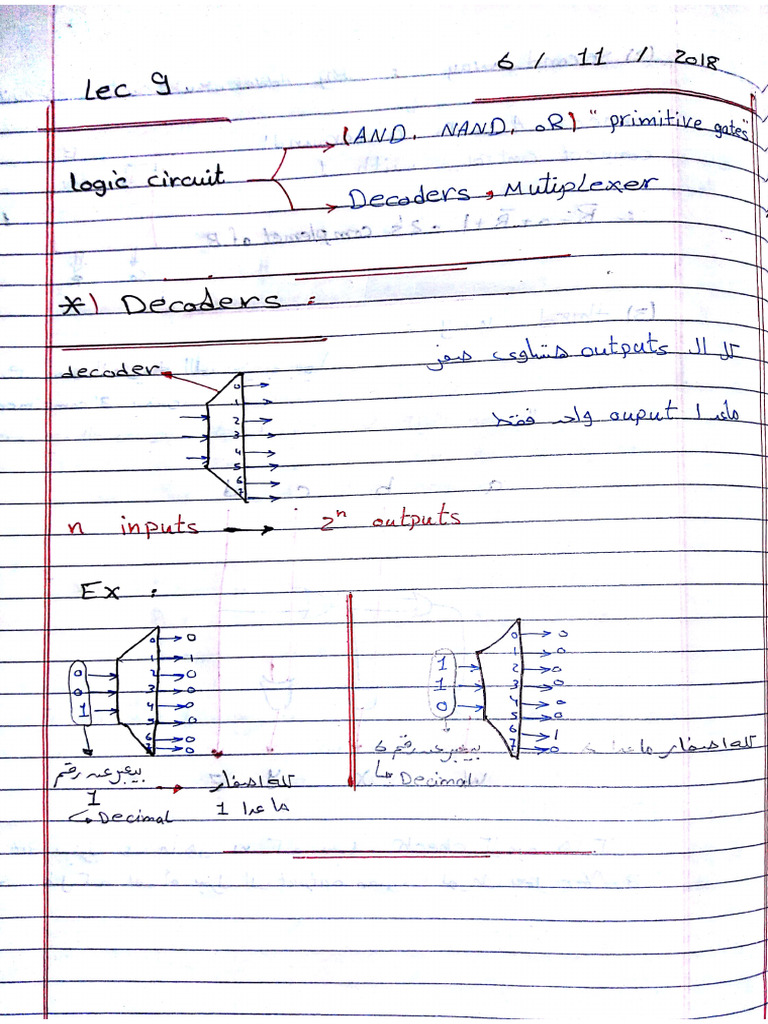 Lec 9.
6 / 11 / 2018
(AND, NAND, OR) "primitive gates"
logic circuit
Decoders, Mutiplexer
*) Decoders :
decoder
كل ال outputs هتساوى صفر
ماعدا ouput واحد فقط
0
1
2
3
4
5
6
7
n inputs → 2ⁿ outputs
Ex :
0 0
1 1
0 2 0
0 3 0
1 4 0
5 0
6 0
7 0
بيعبر عن رقم
1
Decimal
كله اصفار
ماعدا 1
0 0
1 0
1 2 0
1 3 0
0 4 0
5 0
6 1
7 0
بيعبر عن رقم 6
Decimal
كله اصفار ماعدا 6